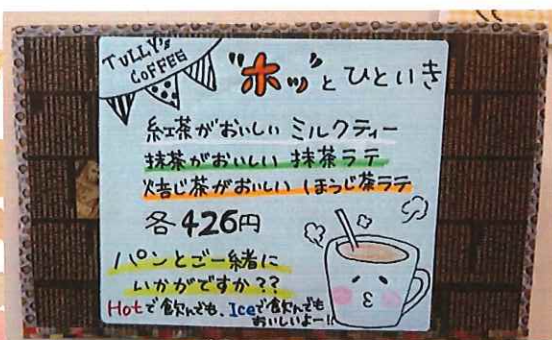 TULLY's
COFFEE
"ホッ"とひといき
紅茶がおいしい ミルクティー
抹茶がおいしい 抹茶ラテ
焙じ茶がおいしい ほうじ茶ラテ
各426円
パンとご一緒に
いかがですか??
Hotで飲んでも、Iceで飲んでも
おいしいよー!!